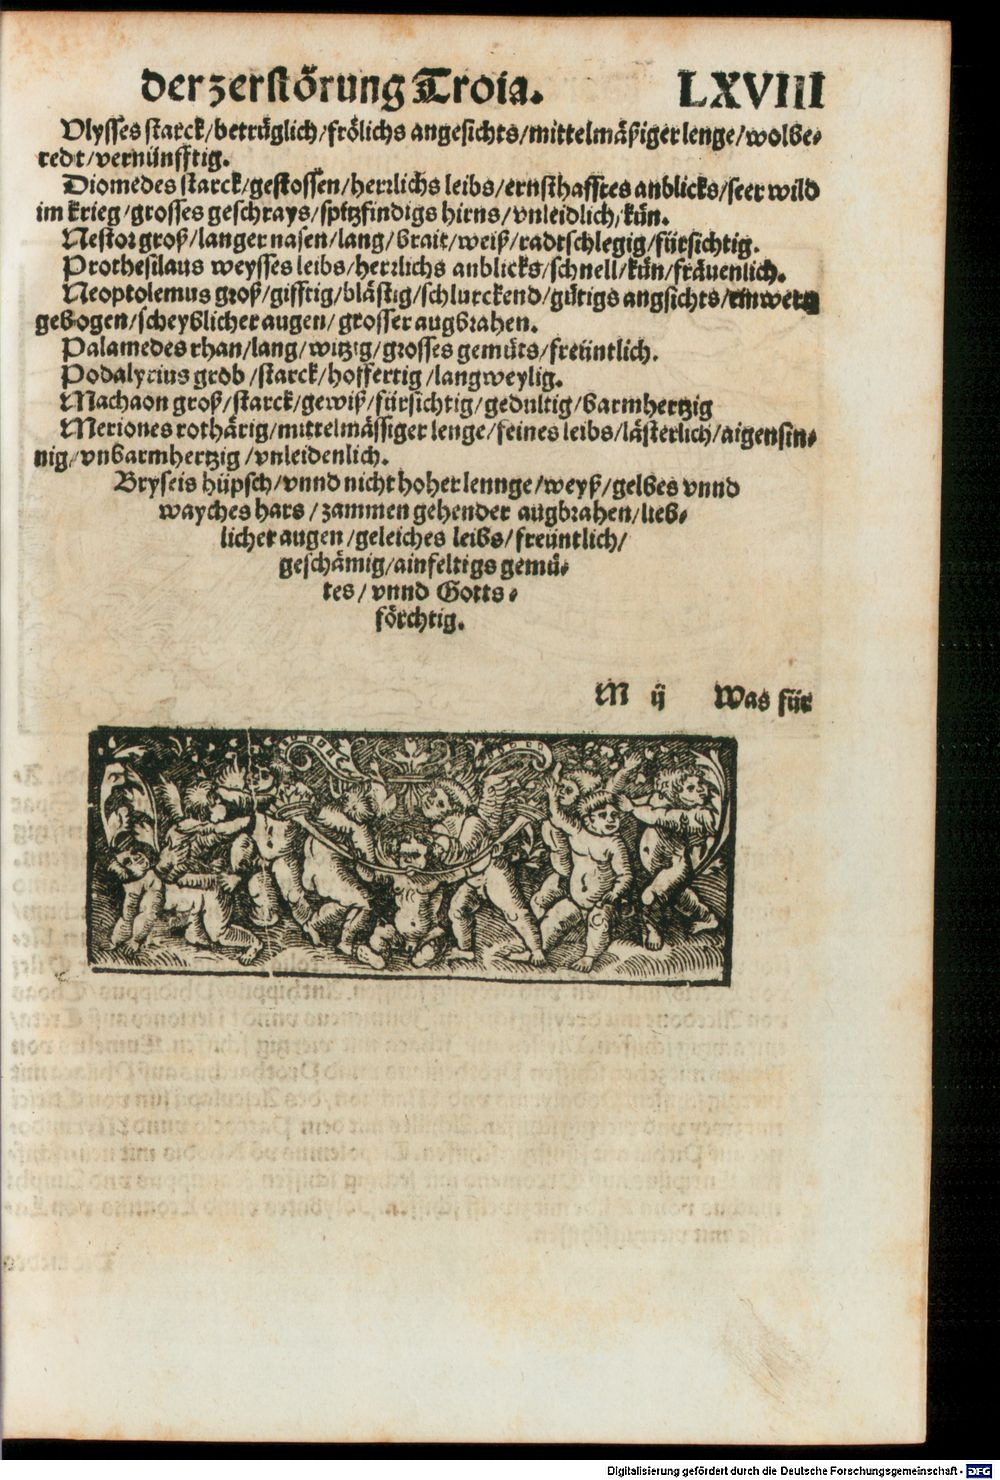 der zerstörung Troia. LXVIII
Vlysses starck/betrüglich/frölichs angesichts/mittelmäßiger lenge/wolbe⸗
redt/vernünfftig.
Diomedes starck/gestossen/herrlichs leibs/ernsthafftes anblicks/seer wild
im krieg/grosses geschrays/spitzfindigs hirns/vnleidlich/kün.
Nestor groß/langer nasen/lang/brait/weiß/radtschlegig/fürsichtig.
Prothesilaus weysses leibs/herrlichs anblicks/schnell/kün/fräuenlich.
Neoptolemus groß/gifftig/blästig/schlurckend/gütigs angsichts/einwertz
gebogen/scheyblicher augen/grosser augbrahen.
Palamedes rhan/lang/witzig/grosses gemüts/freüntlich.
Podalyrius grob/starck/hoffertig/langweylig.
Machaon groß/starck/gewiß/fürsichtig/gedultig/barmhertzig
Meriones rothärig/mittelmässiger lenge/feines leibs/lästerlich/aigensin⸗
nig/vnbarmhertzig/vnleidenlich.
Bryseis hüpsch/vnnd nicht hoher lennge/weyß/gelbes vnnd
wayches hars/zammen gehender augbrahen/lieb⸗
licher augen/geleiches leibs/freüntlich/
geschämig/ainfeltigs gemü⸗
tes/vnnd Gotts⸗
förchtig.
M ij Was für
Digitalisierung gefördert durch die Deutsche Forschungsgemeinschaft - DFG